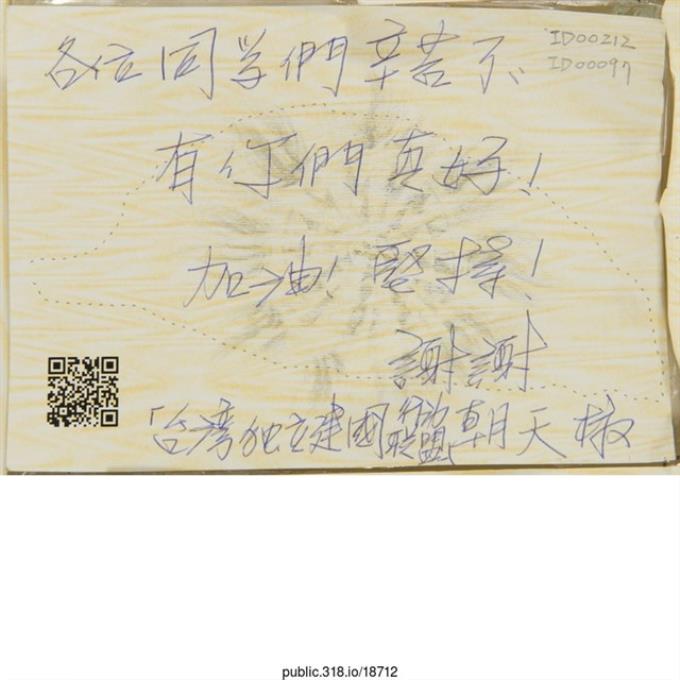 各位同学們辛苦了、
ID00212
ID00097
有你們真好!
加油!堅持!
謝謝
「台湾独立建國行動聯盟」朝天椒
public.318.io/18712